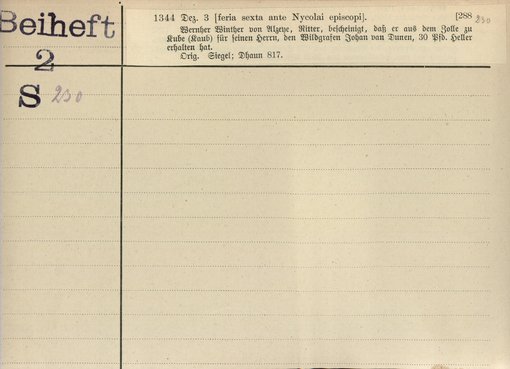 Beiheft
2
S 230
1344 Dez. 3 [feria sexta ante Nycolai episcopi]. [288 230
Wernher Winther von Alzeye, Ritter, bescheinigt, daß er aus dem Zolle zu
Kube (Kaub) für seinen Herrn, den Wildgrafen Johan van Dunen, 30 Pfd. Heller
erhalten hat.
Orig. Siegel; Dhaun 817.